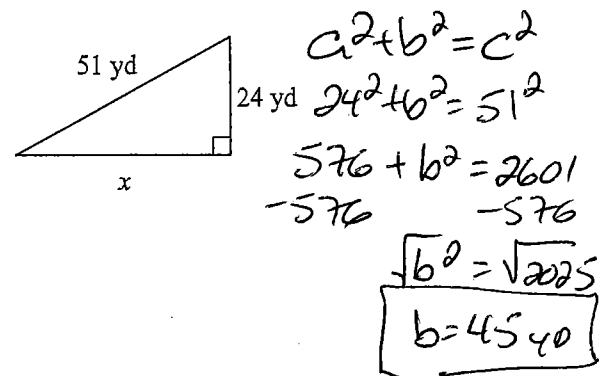 51 yd
24 yd
x
a²+b²=c²
24²+b²=51²
576+b²=2601
-576 -576
√b²=√2025
b=45 yd